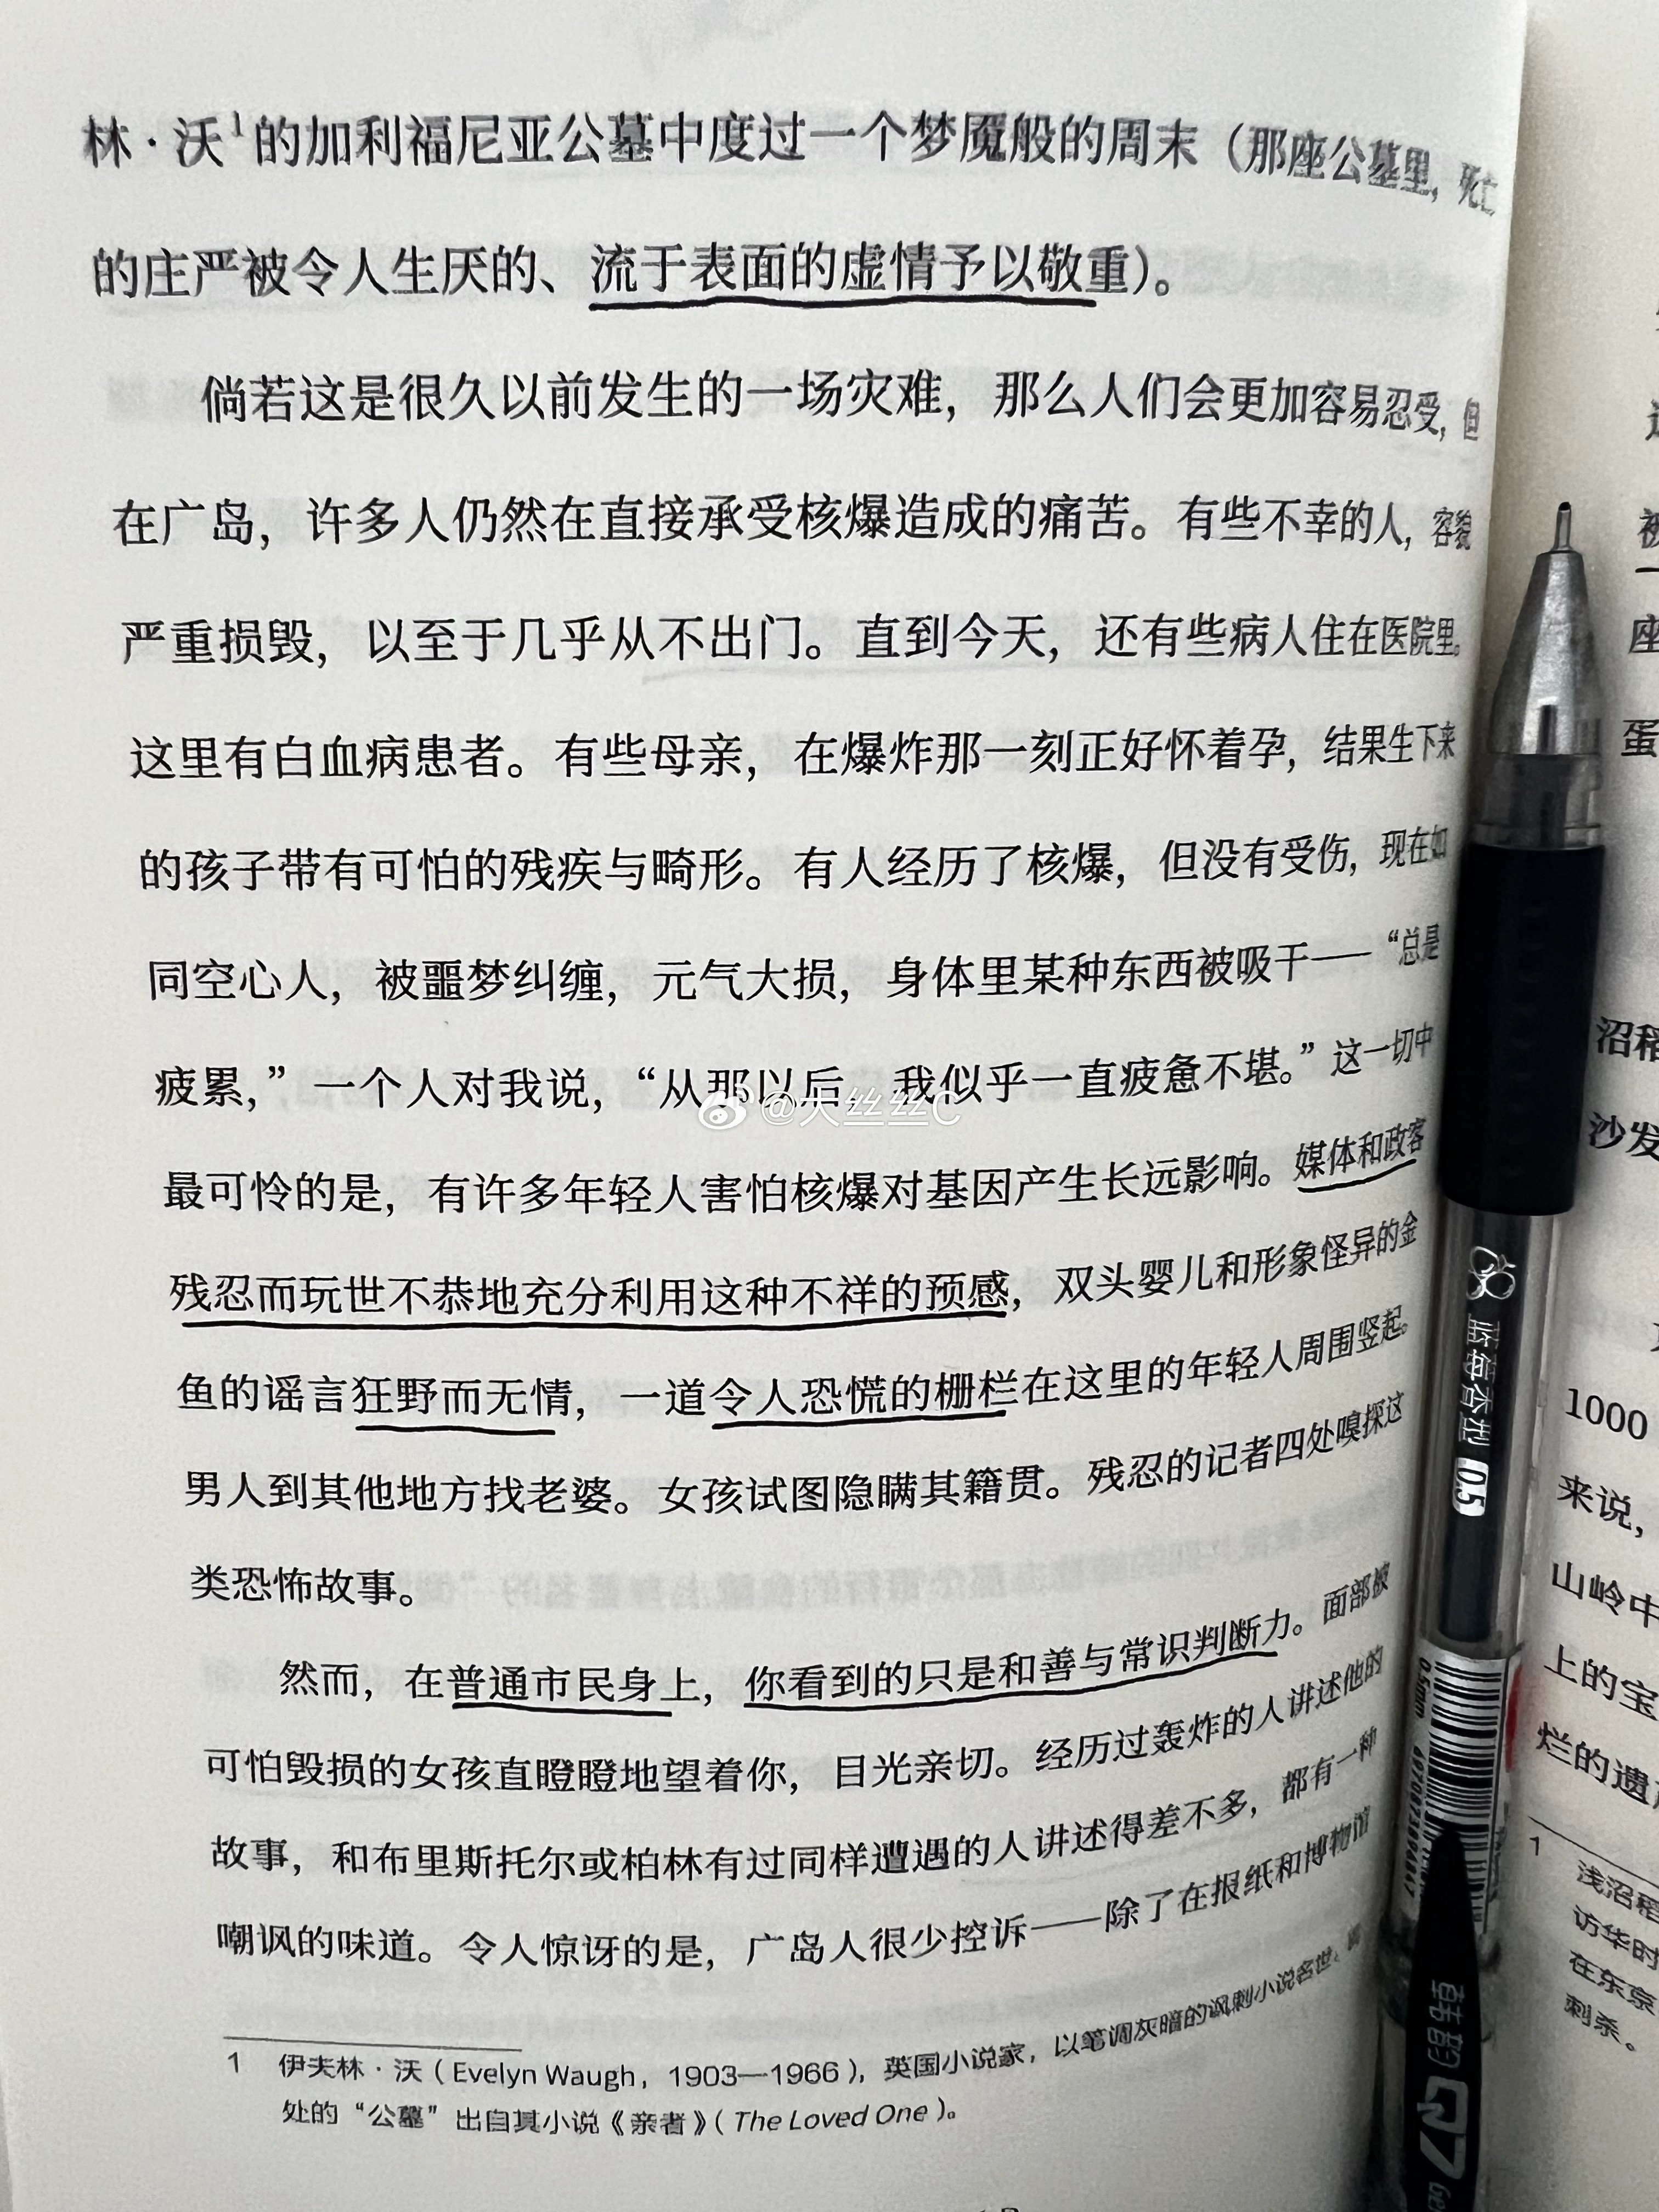 林·沃¹的加利福尼亚公墓中度过一个梦魇般的周末（那座公墓里，死亡
的庄严被令人生厌的、流于表面的虚情予以敬重）。
倘若这是很久以前发生的一场灾难，那么人们会更加容易忍受，但
在广岛，许多人仍然在直接承受核爆造成的痛苦。有些不幸的人，容貌
严重损毁，以至于几乎从不出门。直到今天，还有些病人住在医院里。
这里有白血病患者。有些母亲，在爆炸那一刻正好怀着孕，结果生下来
的孩子带有可怕的残疾与畸形。有人经历了核爆，但没有受伤，现在如
同空心人，被噩梦纠缠，元气大损，身体里某种东西被吸干——“总是
疲累，”一个人对我说，“从那以后，我似乎一直疲惫不堪。”这一切中
最可怜的是，有许多年轻人害怕核爆对基因产生长远影响。媒体和政客
残忍而玩世不恭地充分利用这种不祥的预感，双头婴儿和形象怪异的金
鱼的谣言狂野而无情，一道令人恐慌的栅栏在这里的年轻人周围竖起。
男人到其他地方找老婆。女孩试图隐瞒其籍贯。残忍的记者四处嗅探这
类恐怖故事。
然而，在普通市民身上，你看到的只是和善与常识判断力。面部被
可怕毁损的女孩直瞪瞪地望着你，目光亲切。经历过轰炸的人讲述他的
故事，和布里斯托尔或柏林有过同样遭遇的人讲述得差不多，都有一种
嘲讽的味道。令人惊讶的是，广岛人很少控诉——除了在报纸和博物馆
1 伊夫林·沃（Evelyn Waugh，1903—1966），英国小说家，以笔调灰暗的讽刺小说名世。
处的“公墓”出自其小说《亲者》（The Loved One）。
@大丝丝C
蓝莓香型 0.5
0.5mm 6970873996847
韩韵
Q7
座
蛋
沼稻
沙发
1000
来说，
山岭中
上的宝
烂的遗
1 浅沼稻
访华时
在东京
刺杀。